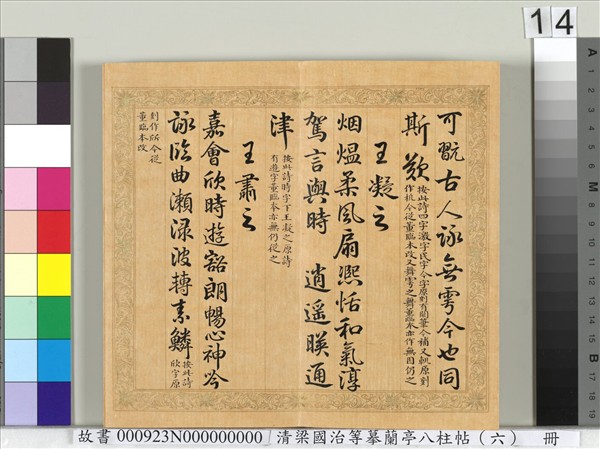 14
可翫古人詠無雩今也同
斯歎
按此詩四字激字氏字今字原刻有闕筆今補又軏原刻
作机今從董臨本改又舞雩之舞董臨本亦作無因仍之
王凝之
烟熅柔風扇熈恬和氣淳
駕言與時 逍遥暎通
津
按此詩時字下王凝之原詩
有遊字董臨本亦無仍從之
王肅之
嘉會欣時遊豁朗暢心神吟
詠臨曲瀨渌波轉素鱗
按此詩
欣字原
刻作所今從
董臨本改
故書 000923N000000000 清梁國治等摹蘭亭八柱帖（六） 冊